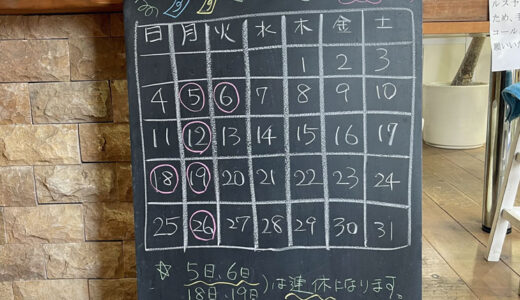 日 月 火 水 木 金 土
1 2 3
4 5 6 7 8 9 10
11 12 13 14 15 16 17
18 19 20 21 22 23 24
25 26 27 28 29 30 31
☆ 5日、6日
18日、19日 ) は連休になります
ルス予
ため、
コール
願いい